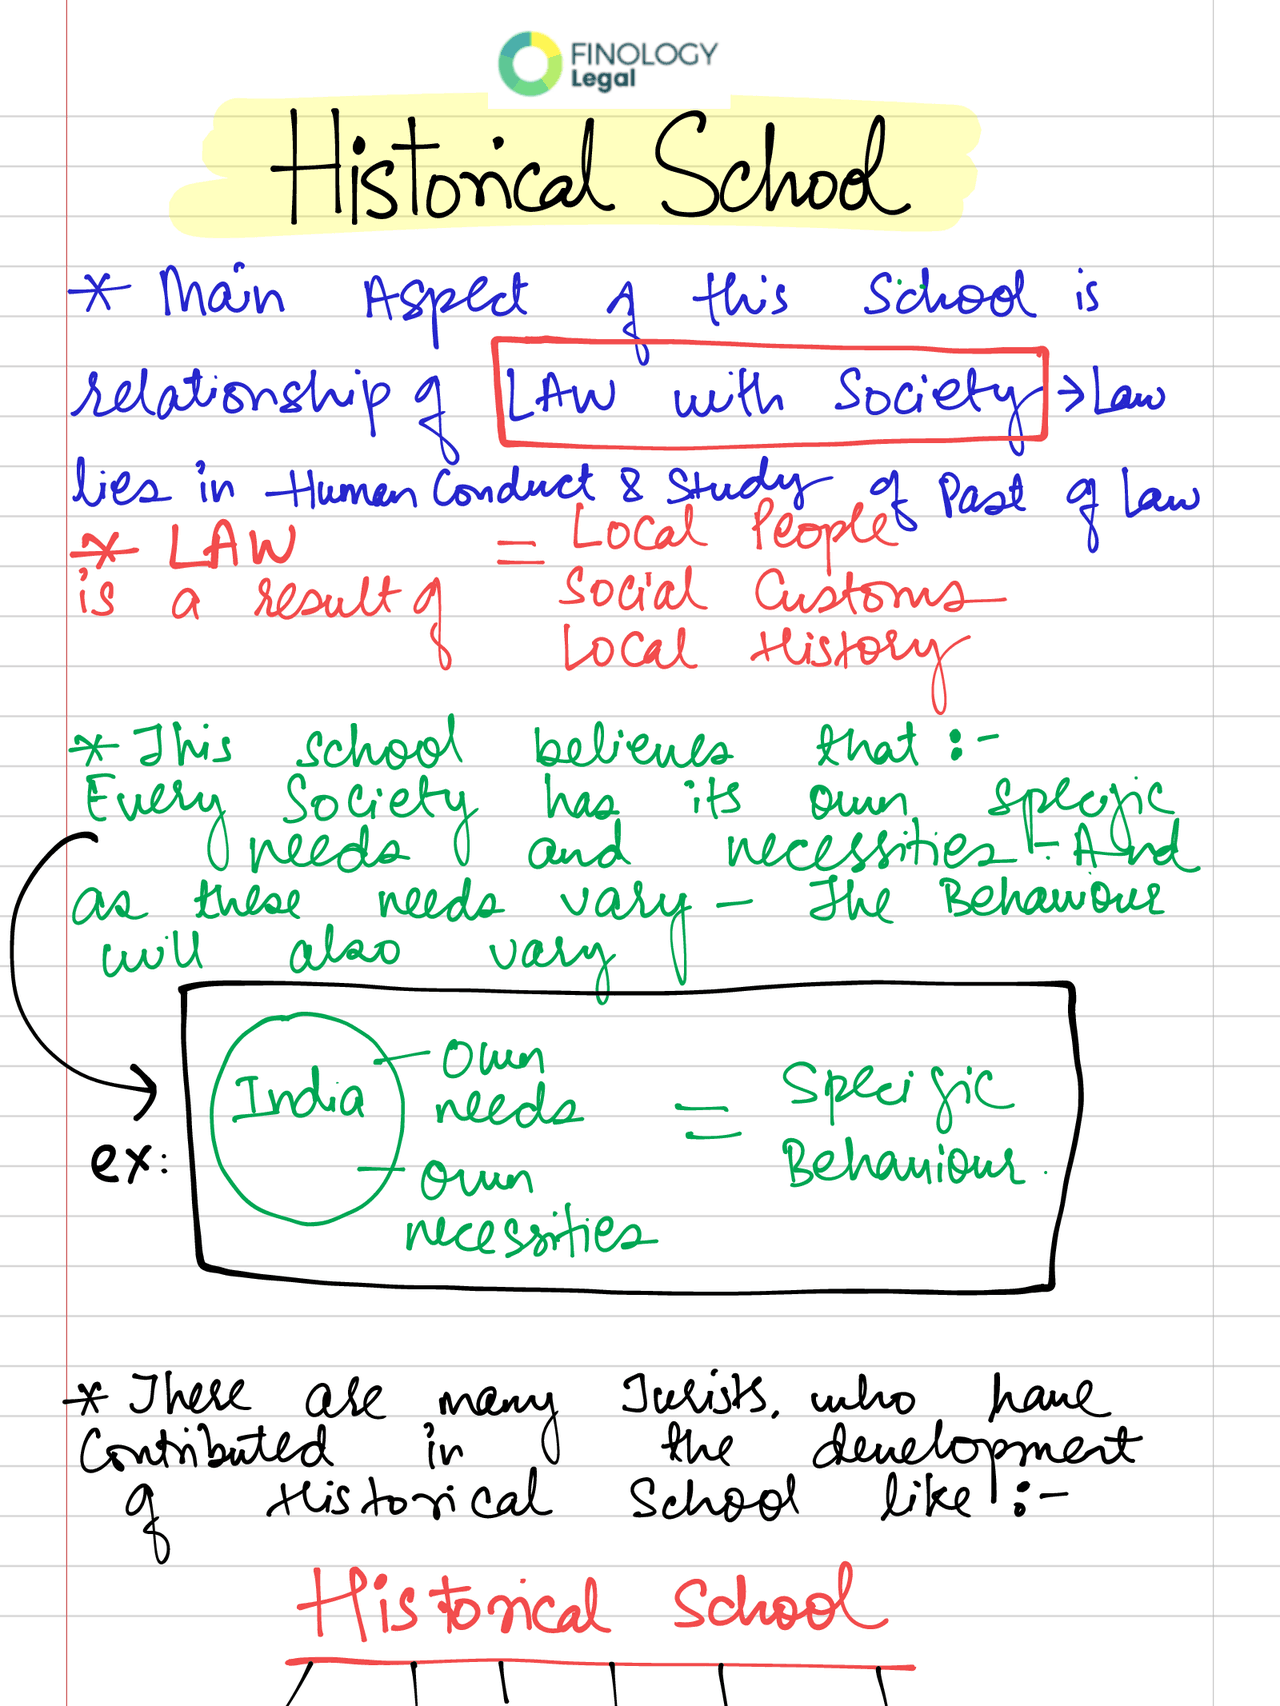 FINOLOGY
Legal
Historical School
* Main Aspect of this School is
relationship of LAW with Society → Law
lies in Human Conduct & Study of Past of Law
* LAW = Local People
is a result of Social Customs
Local History
* This school believes that :-
Every Society has its own specific
needs and necessities - And
as these needs vary - The Behaviour
will also vary
ex:
India
Own
needs
own
necessities
=
Specific
Behaviour.
* There are many Jurists, who have
Contributed in the development
of Historical School like :-
Historical School